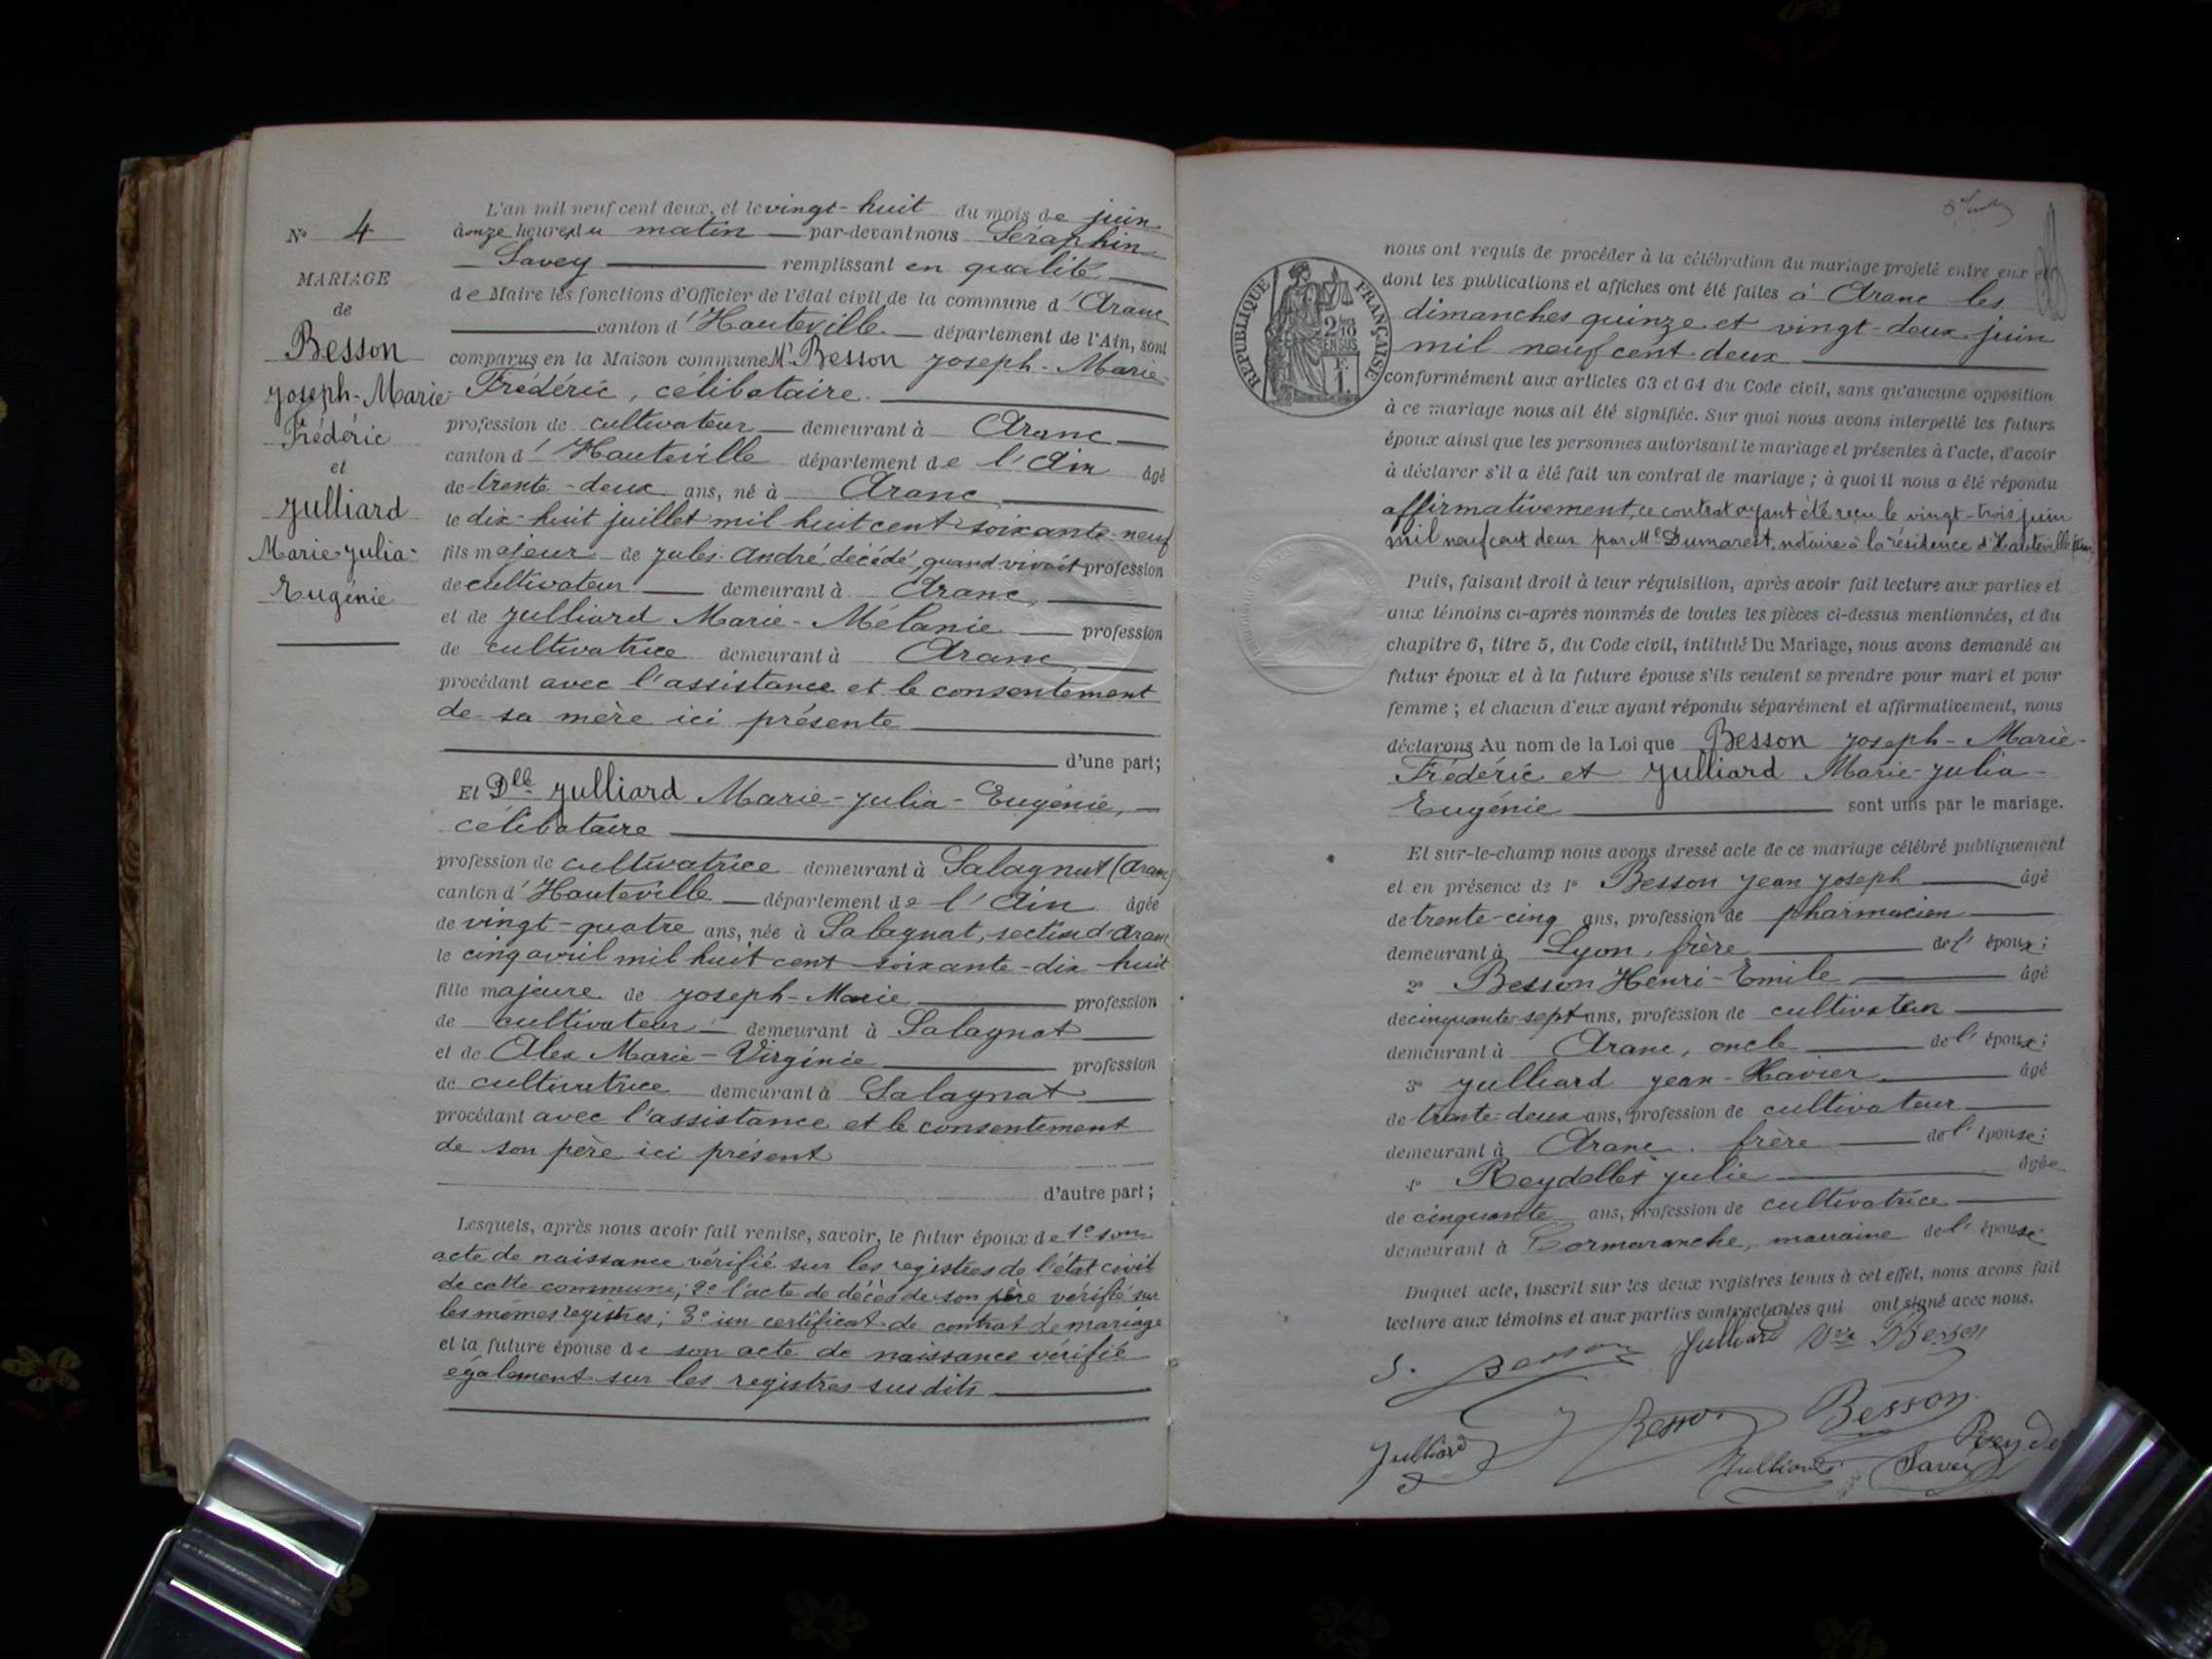 N° 4
MARIAGE
de
Besson
Joseph-Marie-
Frédéric
et
Julliard
Marie-Julia-
Eugénie
L'an mil neuf cent deux, et le vingt-huit du mois de juin
à onze heures du matin par-devant nous Séraphin
Savey remplissant en qualité
de Maire les fonctions d'Officier de l'état civil de la commune d'Aranc
canton d'Hauteville département de l'Ain, sont
comparus en la Maison commune Mr Besson Joseph-Marie-
Frédéric, célibataire.
profession de cultivateur demeurant à Aranc
canton d'Hauteville département de l'Ain âgé
de trente-deux ans, né à Aranc
le dix-huit juillet mil huit cent soixante-neuf
fils majeur de Jules André, décédé, quand vivait profession
de cultivateur demeurant à Aranc,
et de Julliard Marie-Mélanie profession
de cultivatrice demeurant à Aranc,
procédant avec l'assistance et le consentement
de sa mère ici présente
d'une part;
Et Dlle Julliard Marie-Julia-Eugénie,
célibataire
profession de cultivatrice demeurant à Salagnat (Aranc)
canton d'Hauteville département de l'Ain âgée
de vingt-quatre ans, née à Salagnat, section d'Aranc
le cinq avril mil huit cent soixante-dix-huit
fille majeure de Joseph-Marie profession
de cultivateur demeurant à Salagnat
et de Alex Marie-Virginie profession
de cultivatrice demeurant à Salagnat
procédant avec l'assistance et le consentement
de son père ici présent
d'autre part;
Lesquels, après nous avoir fait remise, savoir, le futur époux de 1° son
acte de naissance vérifié sur les registres de l'état civil
de cette commune; 2° l'acte de décès de son père vérifié sur
les mêmes registres; 3° un certificat de contrat de mariage
et la future épouse de son acte de naissance vérifié
également sur les registres susdits
RÉPUBLIQUE FRANÇAISE
2/10
EN SUS
F.
1.
nous ont requis de procéder à la célébration du mariage projeté entre eux et
dont les publications et affiches ont été faites à Aranc les
dimanches quinze et vingt-deux juin
mil neuf cent deux
conformément aux articles 63 et 64 du Code civil, sans qu'aucune opposition
à ce mariage nous ait été signifiée. Sur quoi nous avons interpellé les futurs
époux ainsi que les personnes autorisant le mariage et présentes à l'acte, d'avoir
à déclarer s'il a été fait un contrat de mariage; à quoi il nous a été répondu
affirmativement, ce contrat ayant été reçu le vingt-trois juin
mil neuf cent deux par Me Dumarest, notaire à la résidence d'Hauteville (Ain)
Puis, faisant droit à leur réquisition, après avoir fait lecture aux parties et
aux témoins ci-après nommés de toutes les pièces ci-dessus mentionnées, et du
chapitre 6, titre 5, du Code civil, intitulé Du Mariage, nous avons demandé au
futur époux et à la future épouse s'ils veulent se prendre pour mari et pour
femme; et chacun d'eux ayant répondu séparément et affirmativement, nous
déclarons Au nom de la Loi que Besson Joseph-Marie-
Frédéric et Julliard Marie-Julia-
Eugénie sont unis par le mariage.
Et sur-le-champ nous avons dressé acte de ce mariage célébré publiquement
et en présence de 1° Besson Jean Joseph âgé
de trente-cinq ans, profession de pharmacien
demeurant à Lyon, frère de l'époux;
2° Besson Henri-Emile âgé
de cinquante-sept ans, profession de cultivateur
demeurant à Aranc, oncle de l'époux;
3° Julliard Jean-Xavier âgé
de trente-deux ans, profession de cultivateur
demeurant à Aranc, frère de l'épouse;
4° Reydellet Julie âgée
de cinquante ans, profession de cultivatrice
demeurant à Cormaranche, marraine de l'épouse
Duquel acte, inscrit sur les deux registres tenus à cet effet, nous avons fait
lecture aux témoins et aux parties contractantes qui ont signé avec nous.
J. Besson Julliard Vve Besson
Besson Besson
Julliard Julliard Savey